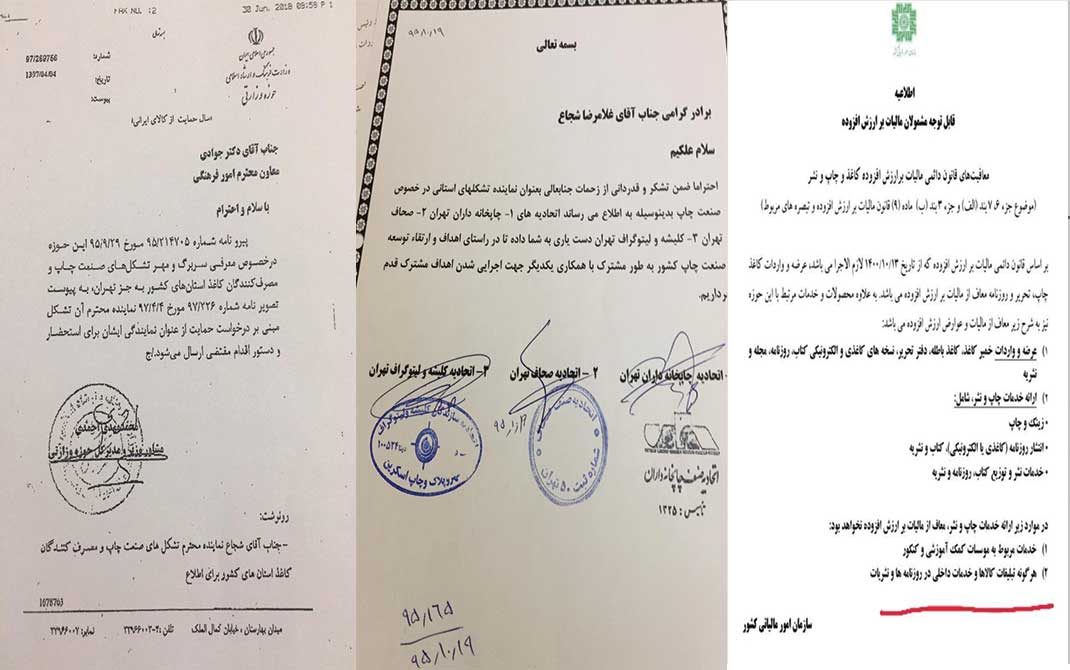 FAX NO. :2
30 Jun. 2018 09:59 P 1
بسمه تعالی
جمهوری اسلامی ایران
وزارت فرهنگ و ارشاد اسلامی
حوزه وزارتی
شماره: 97/269766
تاریخ: 1397/04/04
پیوست:
«سال حمایت از کالای ایرانی»
جناب آقای دکتر جوادی
معاون محترم امور فرهنگی
با سلام و احترام
پیرو نامه شماره ۹۵/۲۱۴۷۰۵ مورخ ۹۵/۹/۲۹ این حوزه
درخصوص معرفی سربرگ و مهر تشکل‌های صنعت چاپ و
مصرف‌کنندگان کاغذ استان‌های کشور به جز تهران، به پیوست
تصویر نامه شماره ۹۷/۲۲۶ مورخ ۹۷/۴/۴ نماینده محترم آن تشکل
مبنی بر درخواست حمایت از عنوان نمایندگی ایشان برای استحضار
و دستور اقدام مقتضی ارسال می‌شود./ج
محمدمهدی احمدی
مشاور وزیر و مدیرکل حوزه وزارتی
رونوشت:
-جناب آقای شجاع نماینده محترم تشکل های صنعت چاپ و مصرف کنندگان
کاغذ استان های کشور برای اطلاع
1078763
میدان بهارستان ، خیابان کمال الملک
تلفن :۴-۳۳۹۶۶۰۰۳
نمابر: ۳۳۹۶۶۰۰۲
۹۵/۱۰/۱۹
بسمه تعالی
برادر گرامی جناب آقای غلامرضا شجاع
سلام علکیم
احتراما ضمن تشکر و قدردانی از زحمات جنابعالی بعنوان نماینده تشکلهای استانی در خصوص
صنعت چاپ بدینوسیله به اطلاع می رساند اتحادیه های ۱- چاپخانه داران تهران ۲- صحاف
تهران ۳- کلیشه و لیتوگراف تهران دست یاری به شما داده تا در راستای اهداف و ارتقاء توسعه
صنعت چاپ کشور به طور مشترک با همکاری یکدیگر جهت اجرایی شدن اهداف مشترک قدم
برداریم.
- اتحادیه چاپخانه داران تهران
۲ - اتحادیه صحاف تهران
۳- اتحادیه کلیشه و لیتوگراف تهران
اتحادیه صنف چاپخانه داران
تاسیس : ۱۳۲۵
شماره ثبت ۵۰ تهران
اتحادیه سازندگان کلیشه و لیتوگراف
مهر و پلاک و چاپ اسکرین
۹۵/۱۶۵
۹۵/۱۰/۱۹
اطلاعیه
قابل توجه مشمولان مالیات بر ارزش افزوده
معافیت‌های قانون دائمی مالیات بر ارزش افزوده کاغذ و چاپ و نشر
(موضوع جزء ۶، ۷ بند (الف) و جزء ۳ بند (ب) ماده (۹) قانون مالیات بر ارزش افزوده و تبصره های مربوط)
بر اساس قانون دائمی مالیات بر ارزش افزوده که از تاریخ ۱۴۰۰/۱۰/۱۳ لازم الاجرا می باشد، عرضه و واردات کاغذ
چاپ، تحریر و روزنامه معاف از مالیات بر ارزش افزوده می باشد. به علاوه محصولات و خدمات مرتبط با این حوزه
نیز به شرح زیر معاف از مالیات و عوارض ارزش افزوده می باشد:
۱) عرضه و واردات خمیر کاغذ، کاغذ باطله، دفتر تحریر، نسخه های کاغذی و الکترونیکی کتاب، روزنامه، مجله و
نشریه
۲) ارائه خدمات چاپ و نشر، شامل:
• زینک و چاپ
• انتشار روزنامه (کاغذی یا الکترونیکی)، کتاب و نشریه
• خدمات نشر و توزیع کتاب، روزنامه و نشریه
در موارد زیر ارائه خدمات چاپ و نشر، معاف از مالیات بر ارزش افزوده نخواهد بود:
۱) خدمات مربوط به موسسات کمک آموزشی و کنکور
۲) هرگونه تبلیغات کالاها و خدمات داخلی در روزنامه ها و نشریات
سازمان امور مالیاتی کشور